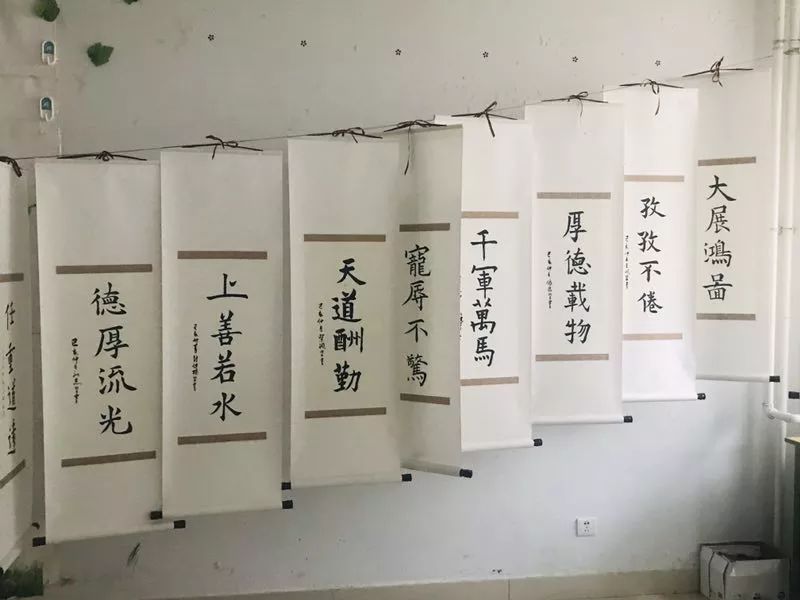 任重道遠
德厚流光
上善若水
天道酬勤
寵辱不驚
千軍萬馬
厚德載物
孜孜不倦
大展鴻圖